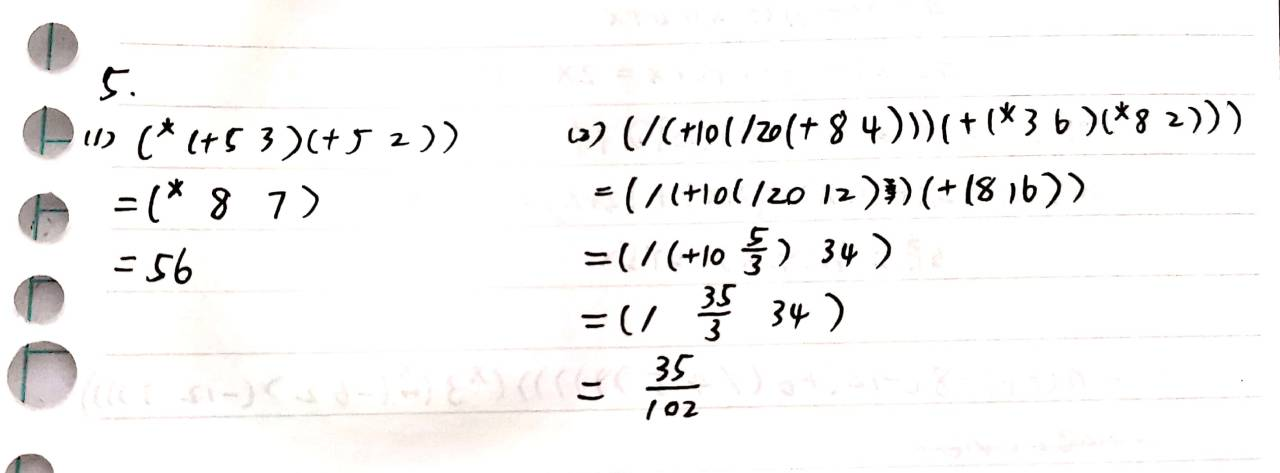 5.
(1) (* (+5 3)(+5 2))
= (* 8 7)
= 56
(2) (/(+10(/20(+ 8 4)))(+(*3 6)(*8 2)))
= (/(+10(/20 12))(+18 16))
= (/(+10 5/3) 34)
= (/ 35/3 34)
= 35/102